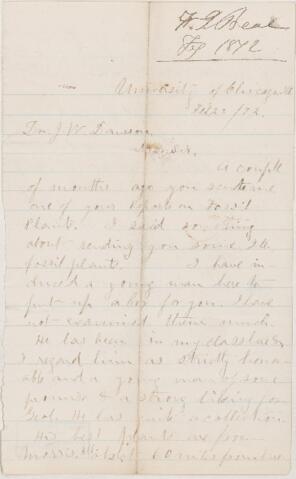 W. J. Beal
Feb 1872
University of Chicago Ill
Feb 22/72.
Dr. J. W. Dawson,
My Dear Sir.
A couple
of months ago you sent me
one of your reports on Fossil
Plants. I said something
about sending you some Ill
fossil plants. I have in-
duced a young man here to
put up a box for you. I have
not examined them much.
He has been in my classes &
I regard him as strictly honor-
able and a young man of some
promise & a strong liking for
Geol. He has quite a collection.
His best plants are from
Morris, Ills. 60 miles from here